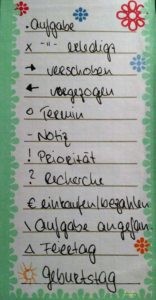 • Aufgabe
x -"- erledigt
→ verschoben
← vorgezogen
o Termin
- Notiz
! Priorität
? Recherche
€ einkaufen/bezahlen
\ Aufgabe angefan.
△ Feiertag
Geburtstag